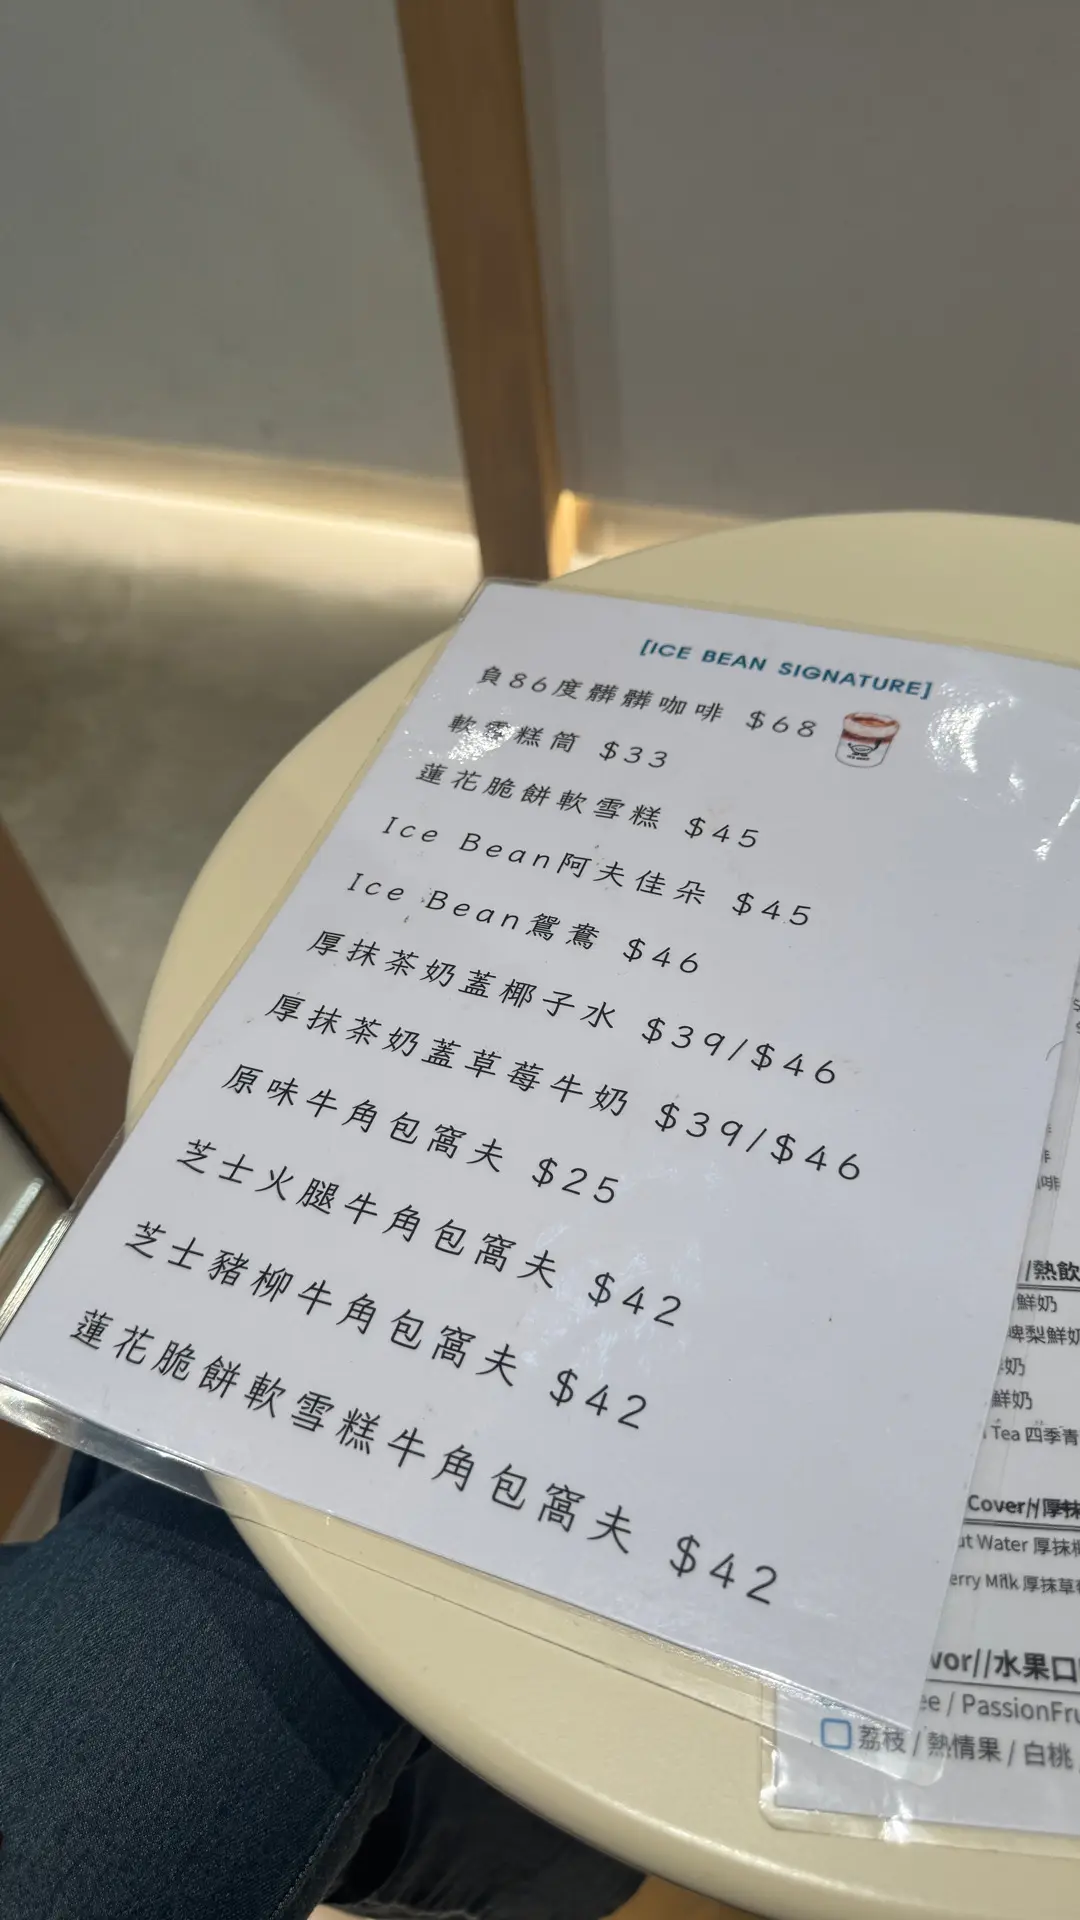 [ICE BEAN SIGNATURE]
負86度髒髒咖啡 $68
軟雪糕筒 $33
蓮花脆餅軟雪糕 $45
Ice Bean阿夫佳朵 $45
Ice Bean鴛鴦 $46
厚抹茶奶蓋椰子水 $39/$46
厚抹茶奶蓋草莓牛奶 $39/$46
原味牛角包窩夫 $25
芝士火腿牛角包窩夫 $42
芝士豬柳牛角包窩夫 $42
蓮花脆餅軟雪糕牛角包窩夫 $42
啡
/熱飲
鮮奶
啤梨鮮奶
奶
鮮奶
Tea 四季青
Cover//厚抹
ut Water 厚抹椰
erry Milk 厚抹草莓
vor//水果口
ee / PassionFru
荔枝 / 熱情果 / 白桃